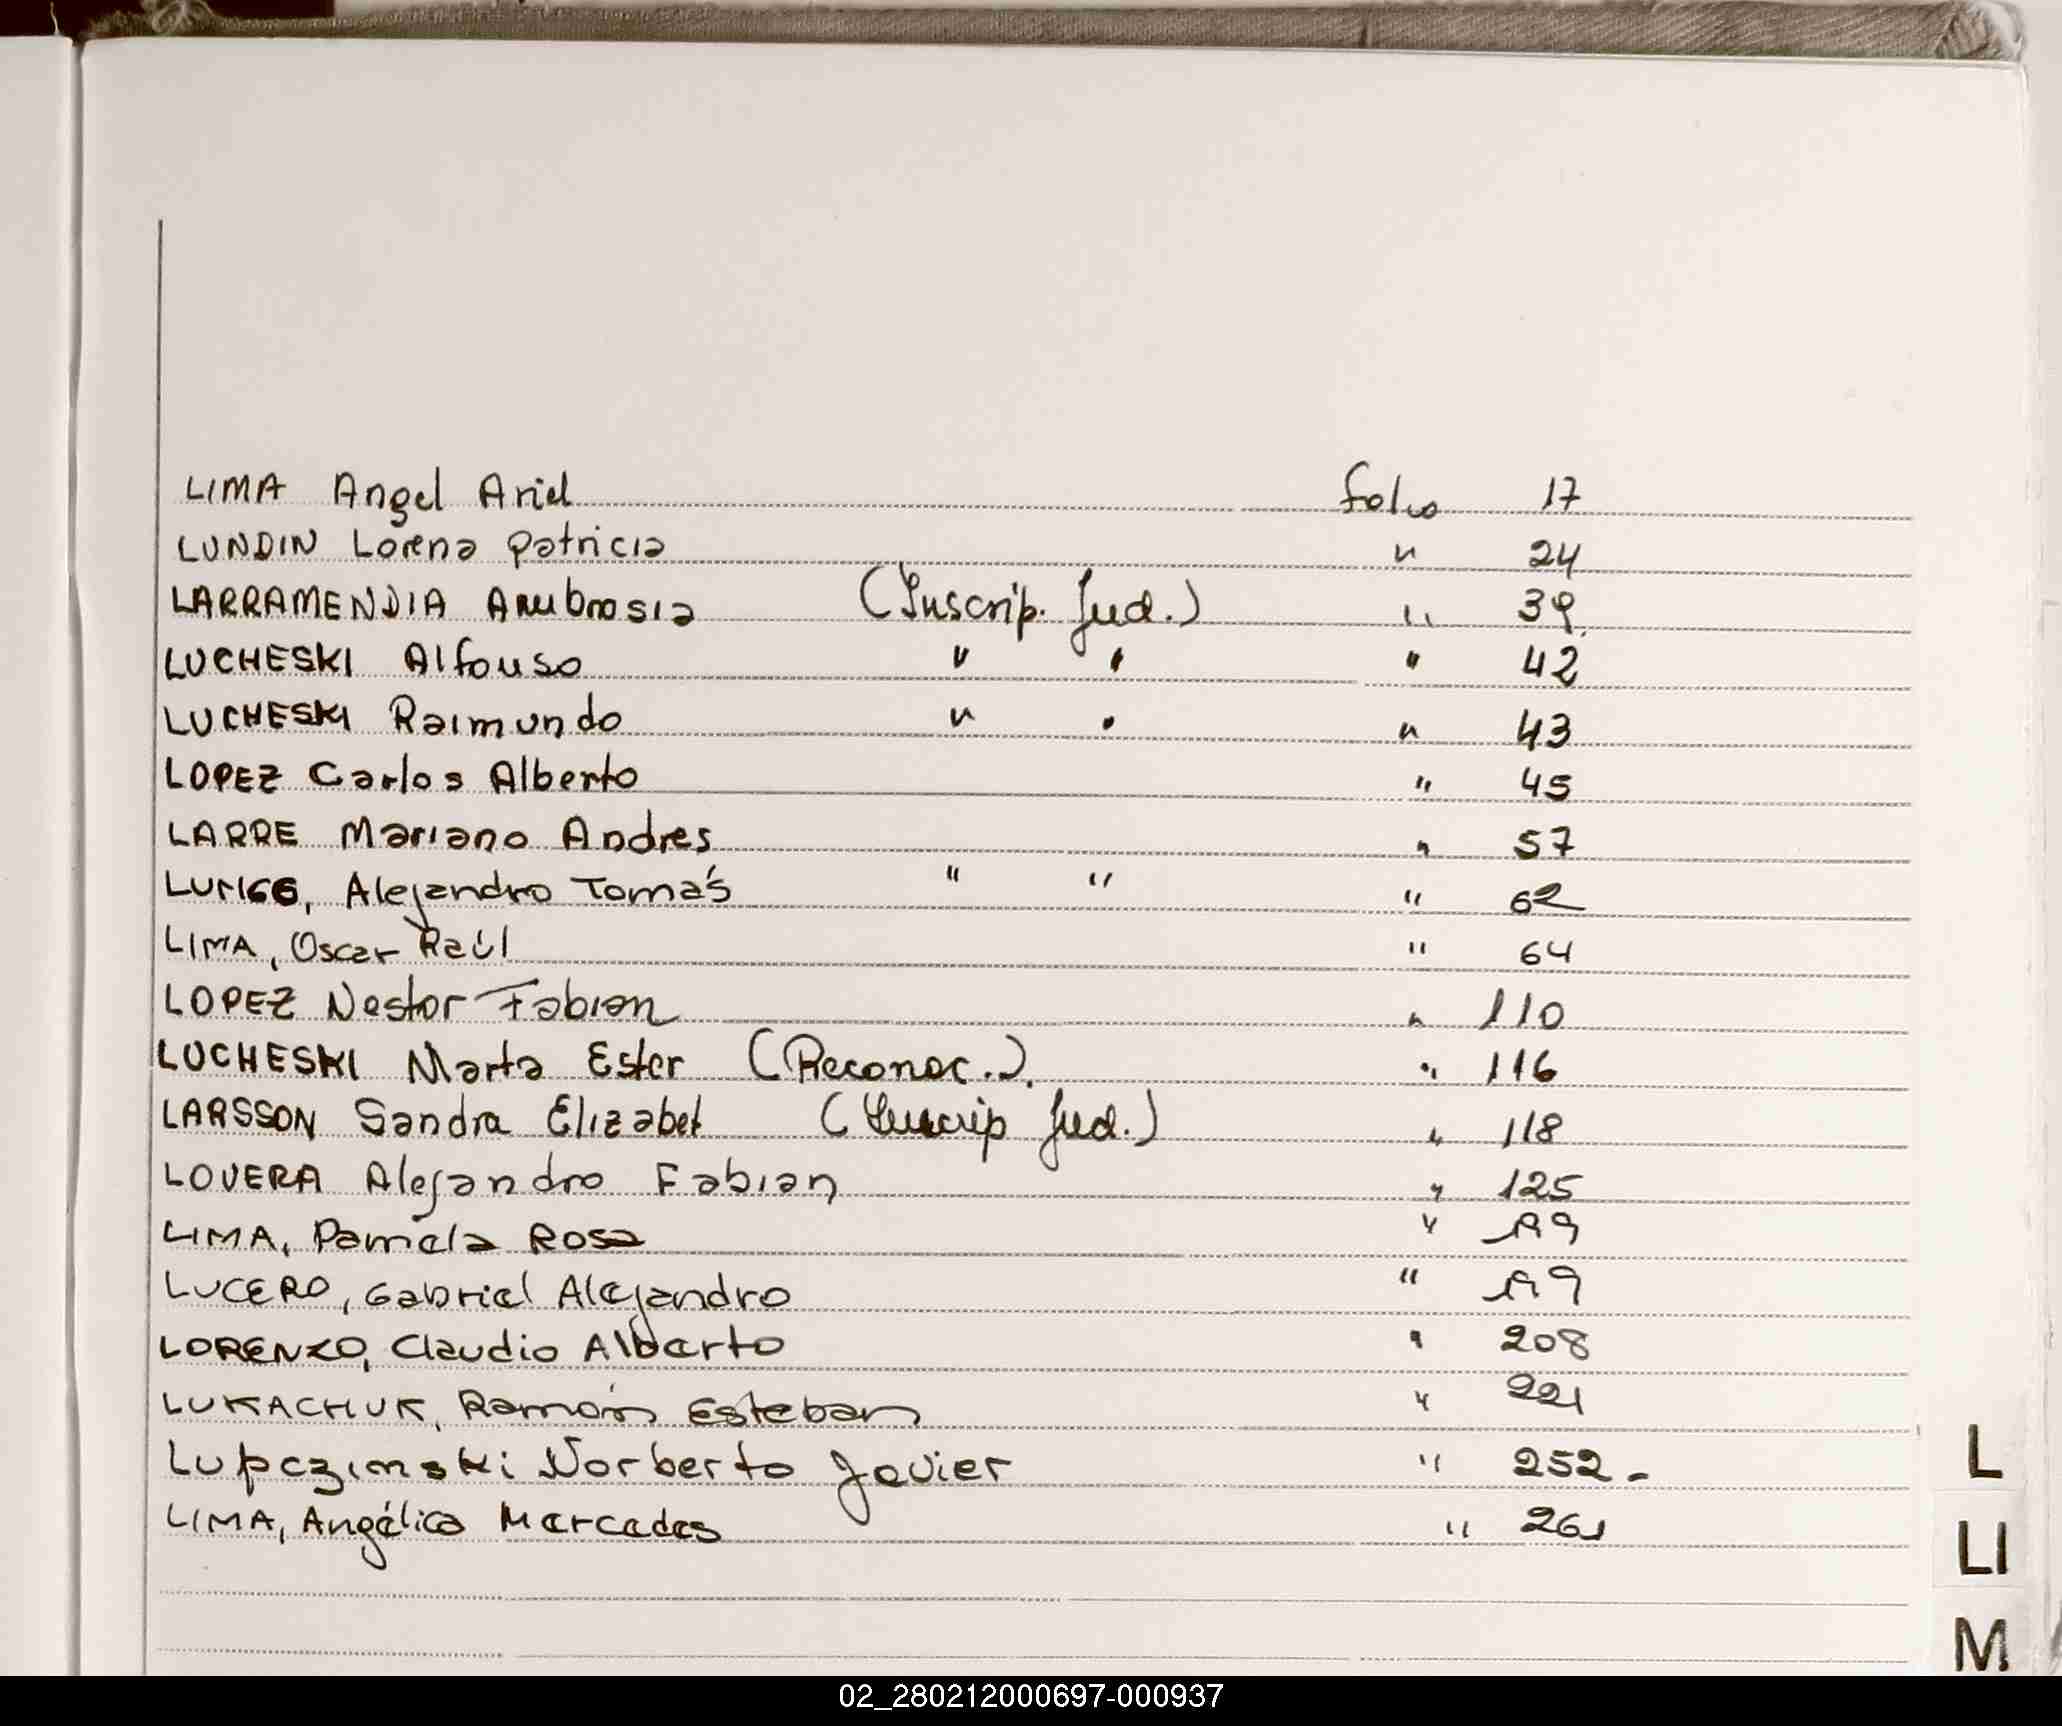 LIMA Angel Ariel folio 17
LUNDIN Lorena Patricia " 24
LARRAMENDIA Ambrosia (Inscrip. Jud.) " 39
LUCHESKI Alfonso " " " 42
LUCHESKI Raimundo " " " 43
LOPEZ Carlos Alberto " 45
LARRE Mariano Andres " 57
Alejandro Tomás " " " 62
LIMA, Oscar Raúl " 64
LOPEZ Nestor Fabian " 110
LUCHESKI Marta Ester (Reconoc.) " 116
LARSSON Sandra Elizabet (Inscrip Jud.) " 118
LOVERA Alejandro Fabian " 125
LIMA, Pamela Rosa "
LUCERO, Gabriel Alejandro "
LORENZO, Claudio Alberto " 208
LUKACHUK, Ramón Esteban " 221
Lupczinski Norberto Javier " 252.-
LIMA, Angélica Mercedes " 261
L
LI
M
02_280212000697-000937